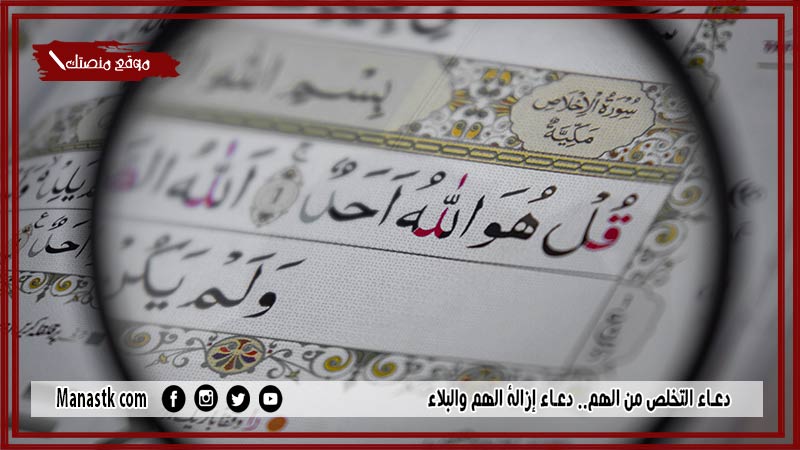 موقع منصتك
بِسْمِ اللهِ
سُورَةُ الْاِخْلَاصِ
مَكِّيَّةٌ
قُلْ هُوَ اللّٰهُ اَحَدٌ ۚ ١ اَللّٰهُ
اَحَدٌ
وَلَمْ يَكُنْ
دعاء التخلص من الهم.. دعاء إزالة الهم والبلاء
Manastk com